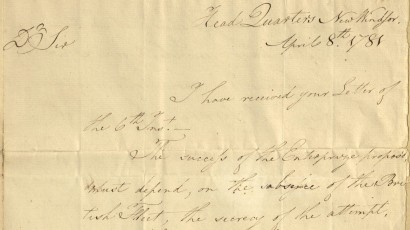 Head Quarters New Windsor.
April 8th. 1781
Dr. Sir
I have received your Letter of
the 6th Inst.—
The success of the Enterprize propos'd
must depend, on the absence of the Bri
tish Fleet, the secrecy of the attempt,